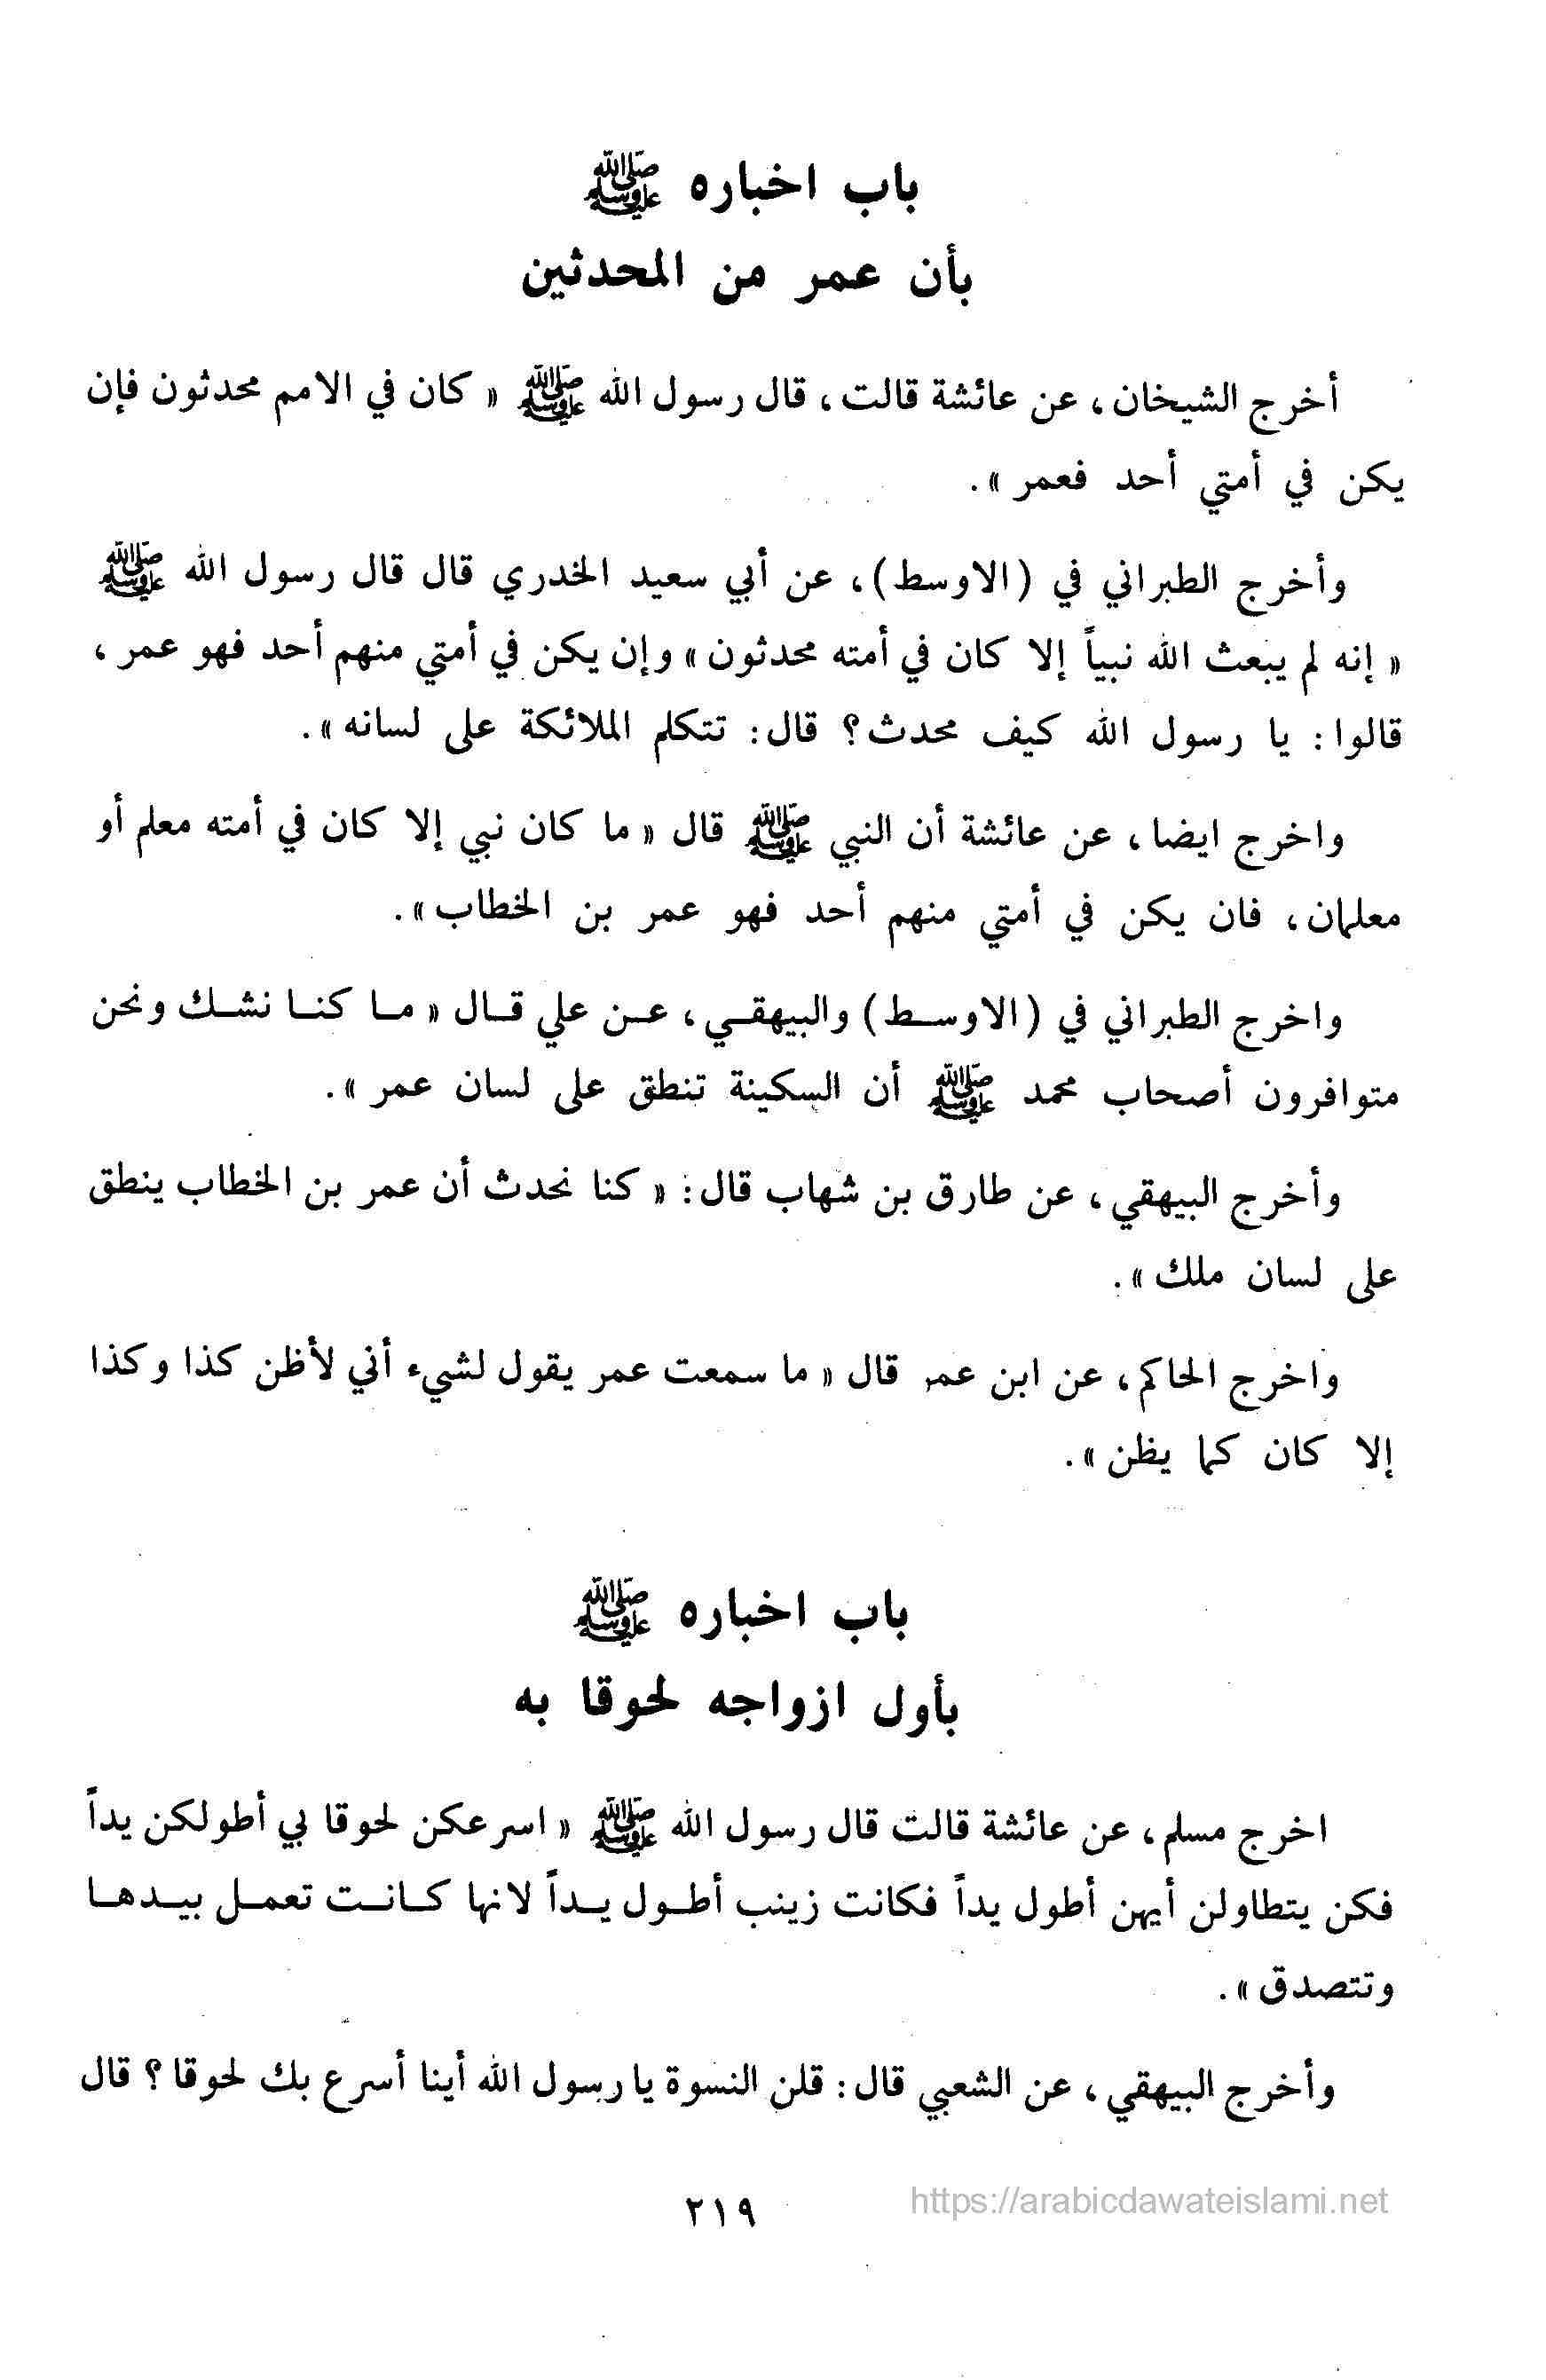 باب اخباره ﷺ
بأن عمر من المحدثين
أخرج الشيخان، عن عائشة قالت، قال رسول الله ﷺ « كان في الامم محدثون فإن
يكن في أمتي أحد فعمر ».
وأخرج الطبراني في (الاوسط)، عن أبي سعيد الخدري قال قال رسول الله ﷺ
« إنه لم يبعث الله نبياً إلا كان في أمته محدثون » وإن يكن في أمتي منهم أحد فهو عمر ،
قالوا: يا رسول الله كيف محدث؟ قال: تتكلم الملائكة على لسانه ».
واخرج ايضا، عن عائشة أن النبي ﷺ قال « ما كان نبي إلا كان في أمته معلم أو
معلمان، فان يكن في أمتي منهم أحد فهو عمر بن الخطاب ».
واخرج الطبراني في (الاوسط) والبيهقي، عن علي قال « ما كنا نشك ونحن
متوافرون أصحاب محمد ﷺ أن السكينة تنطق على لسان عمر ».
وأخرج البيهقي، عن طارق بن شهاب قال: « كنا نحدث أن عمر بن الخطاب ينطق
على لسان ملك ».
واخرج الحاكم، عن ابن عمر قال « ما سمعت عمر يقول لشيء أني لأظن كذا وكذا
إلا كان كما يظن ».
باب اخباره ﷺ
بأول ازواجه لحوقا به
اخرج مسلم، عن عائشة قالت قال رسول الله ﷺ « اسرعكن لحوقا بي أطولكن يداً
فكن يتطاولن أيهن أطول يداً فكانت زينب أطول يداً لانها كانت تعمل بيدها
وتتصدق ».
وأخرج البيهقي، عن الشعبي قال: قلن النسوة يا رسول الله أينا أسرع بك لحوقا؟ قال
٢١٩
https://arabicdawateislami.net